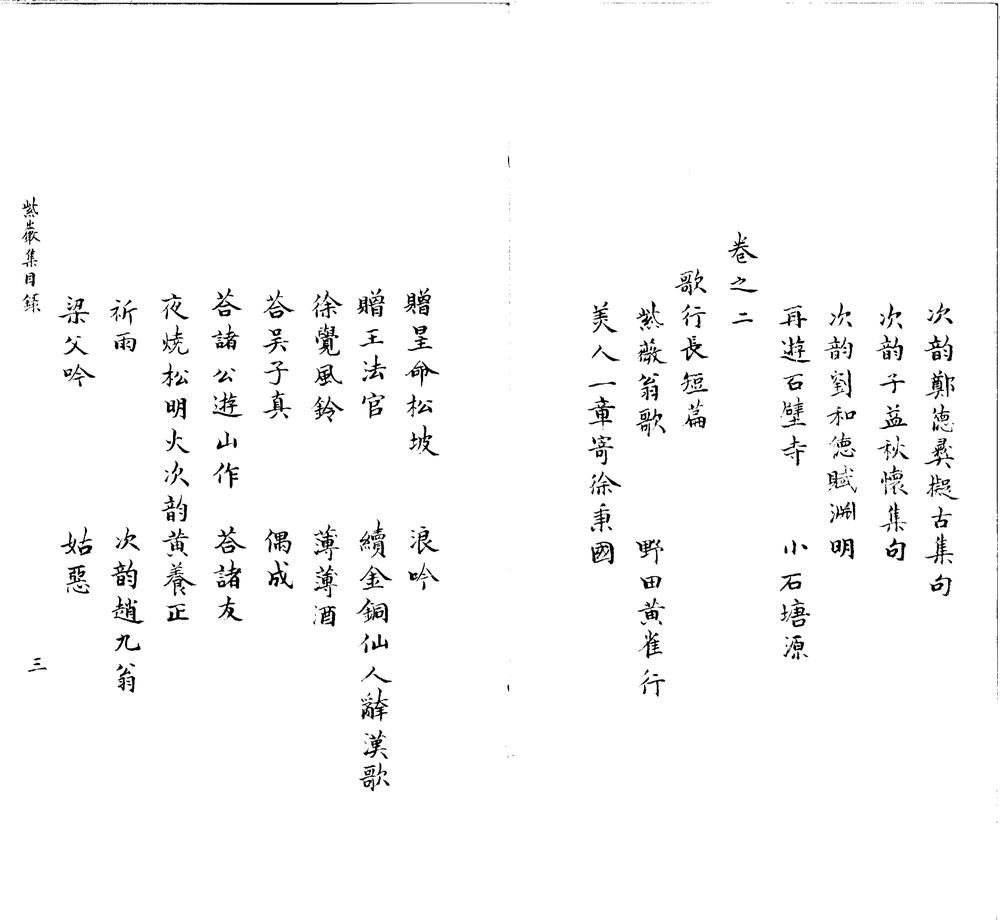 次韵鄭德彝擬古集句
次韵子益秋懷集句
次韵劉和德賦淵明
再遊石壁寺 小石塘源
卷之二
歌行長短篇
紫薇翁歌 野田黃雀行
美人一章寄徐秉國
贈星命松坡 浪吟
贈王法官 續金銅仙人辭漢歌
徐覺風鈴 薄薄酒
荅吴子真 偶成
荅諸公遊山作 荅諸友
夜燒松明火次韵黃養正
祈雨 次韵趙九翁
梁父吟 姑惡
紫巖集目錄 三